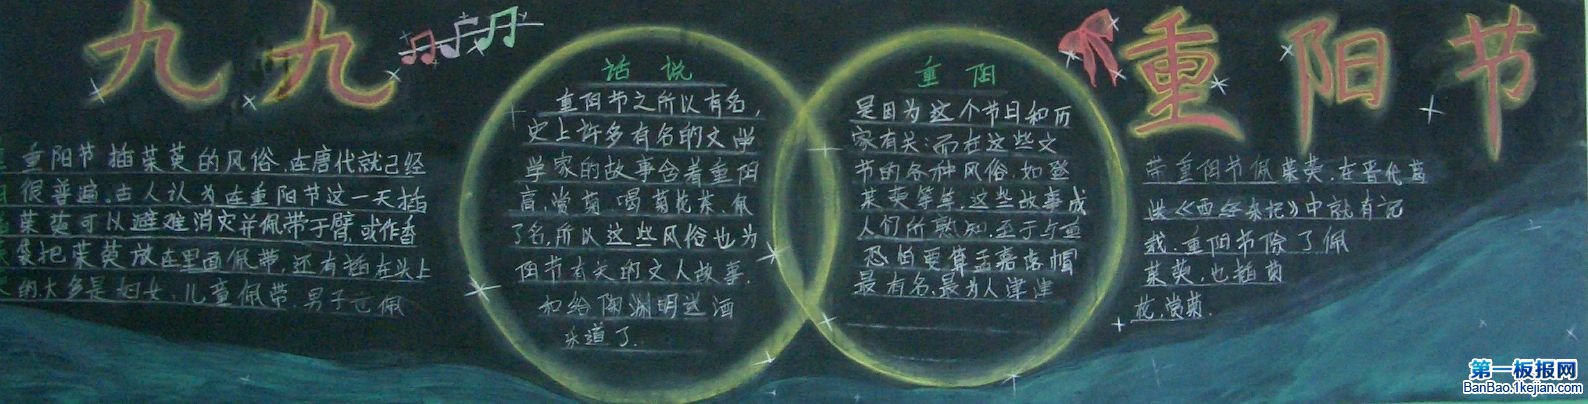 九九
重阳节
重阳节插茱萸的风俗,在唐代就已经
很普遍。古人认为在重阳节这一天插
茱萸可以避难消灾并佩带于臂,或作香
袋把茱萸放在里面佩带,还有插在头上
的。大多是妇女、儿童佩带,男子也佩
话说
重阳节之所以有名,
史上许多有名的文学
学家的故事含着重阳
高,赏菊,喝菊花茶,佩
了名,所以这些风俗也为
阳节有关的文人故事,
和给陶渊明送酒
乐道了.
重阳
是因为这个节日和历
家有关;而在这些文
节的各种风俗,如登
茱萸等等,这些故事成
人们所熟知,至于与重
恐怕要算孟嘉落帽
最有名、最为人津津
带重阳节佩茱萸,在晋代葛
洪《西经杂记》中就有记
载。重阳节除了佩
茱萸,也插菊
花,赏菊.
第一板报网
BanBao.1kejian.com